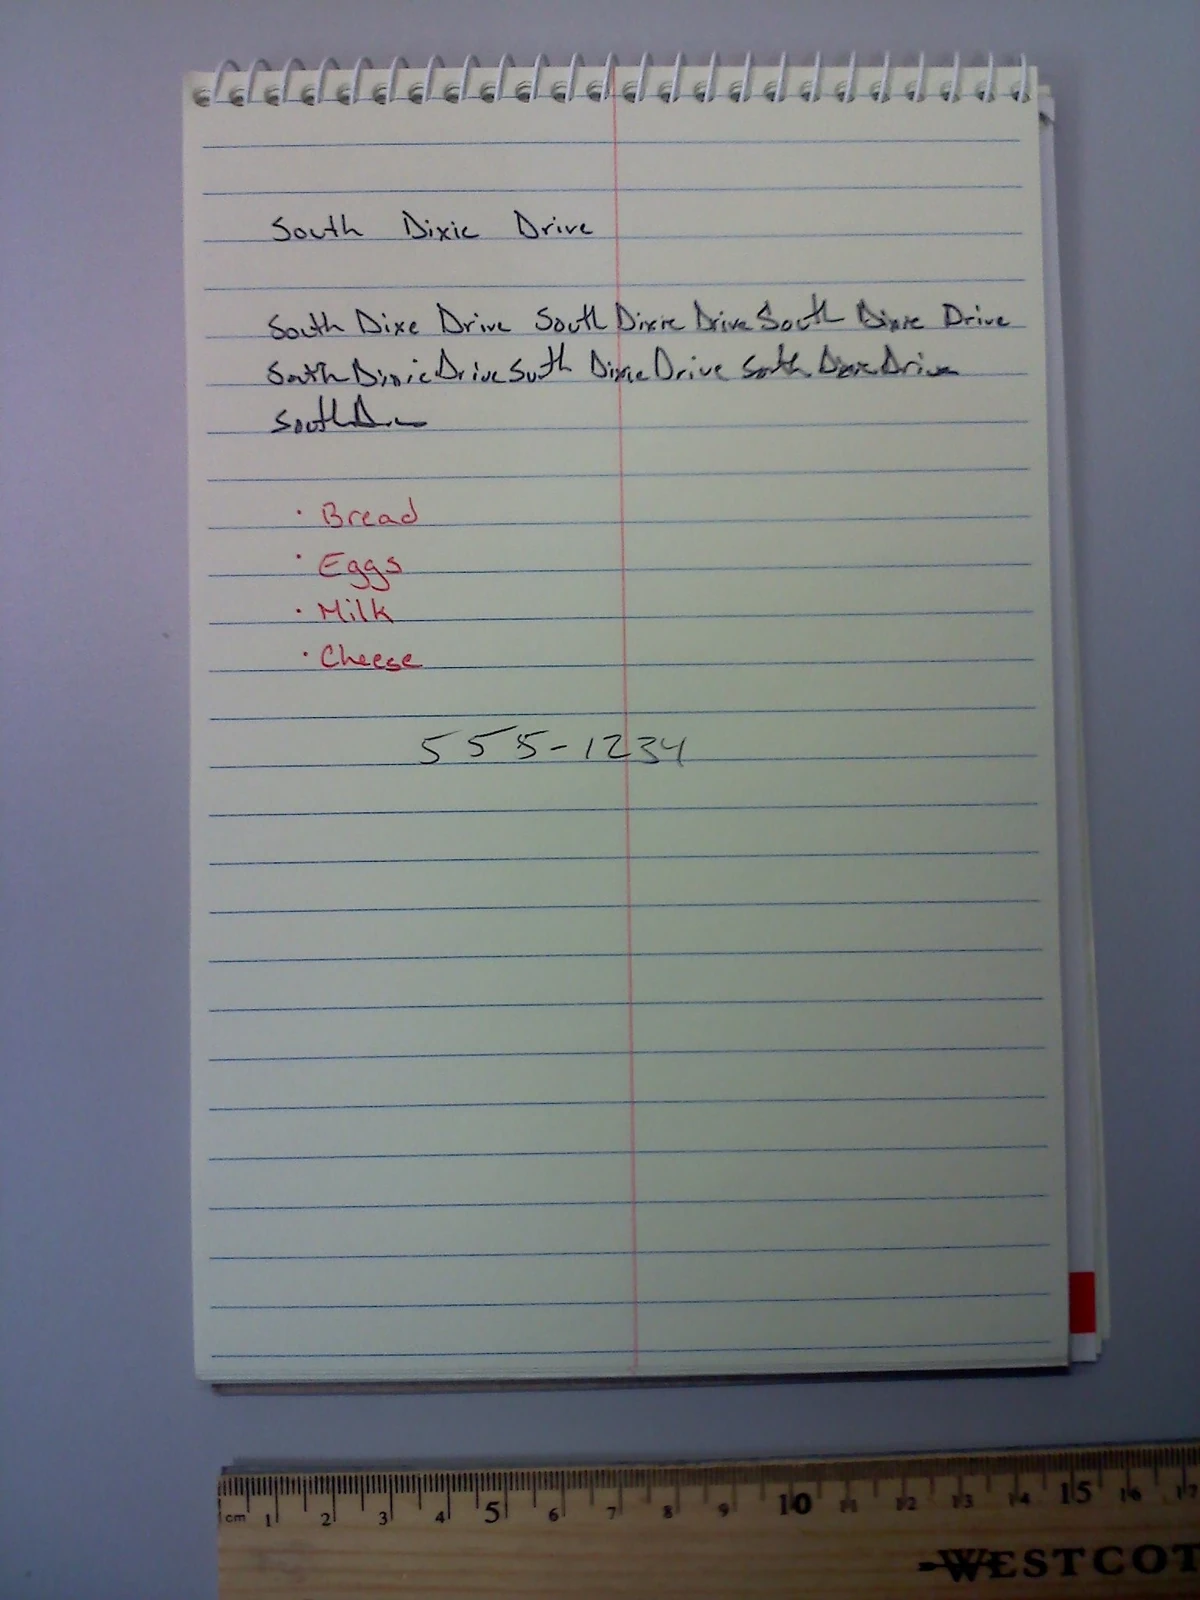 South Dixie Drive
South Dixe Drive South Dixie Drive South Dixie Drive
South Dixie Drive Suth Dixie Drive South Dixie Drive
South
· Bread
· Eggs
· Milk
· Cheese
555-1234
cm 1 2 3 4 5 6 7 8 9 10 11 12 13 14 15 16 17
WESTCOT